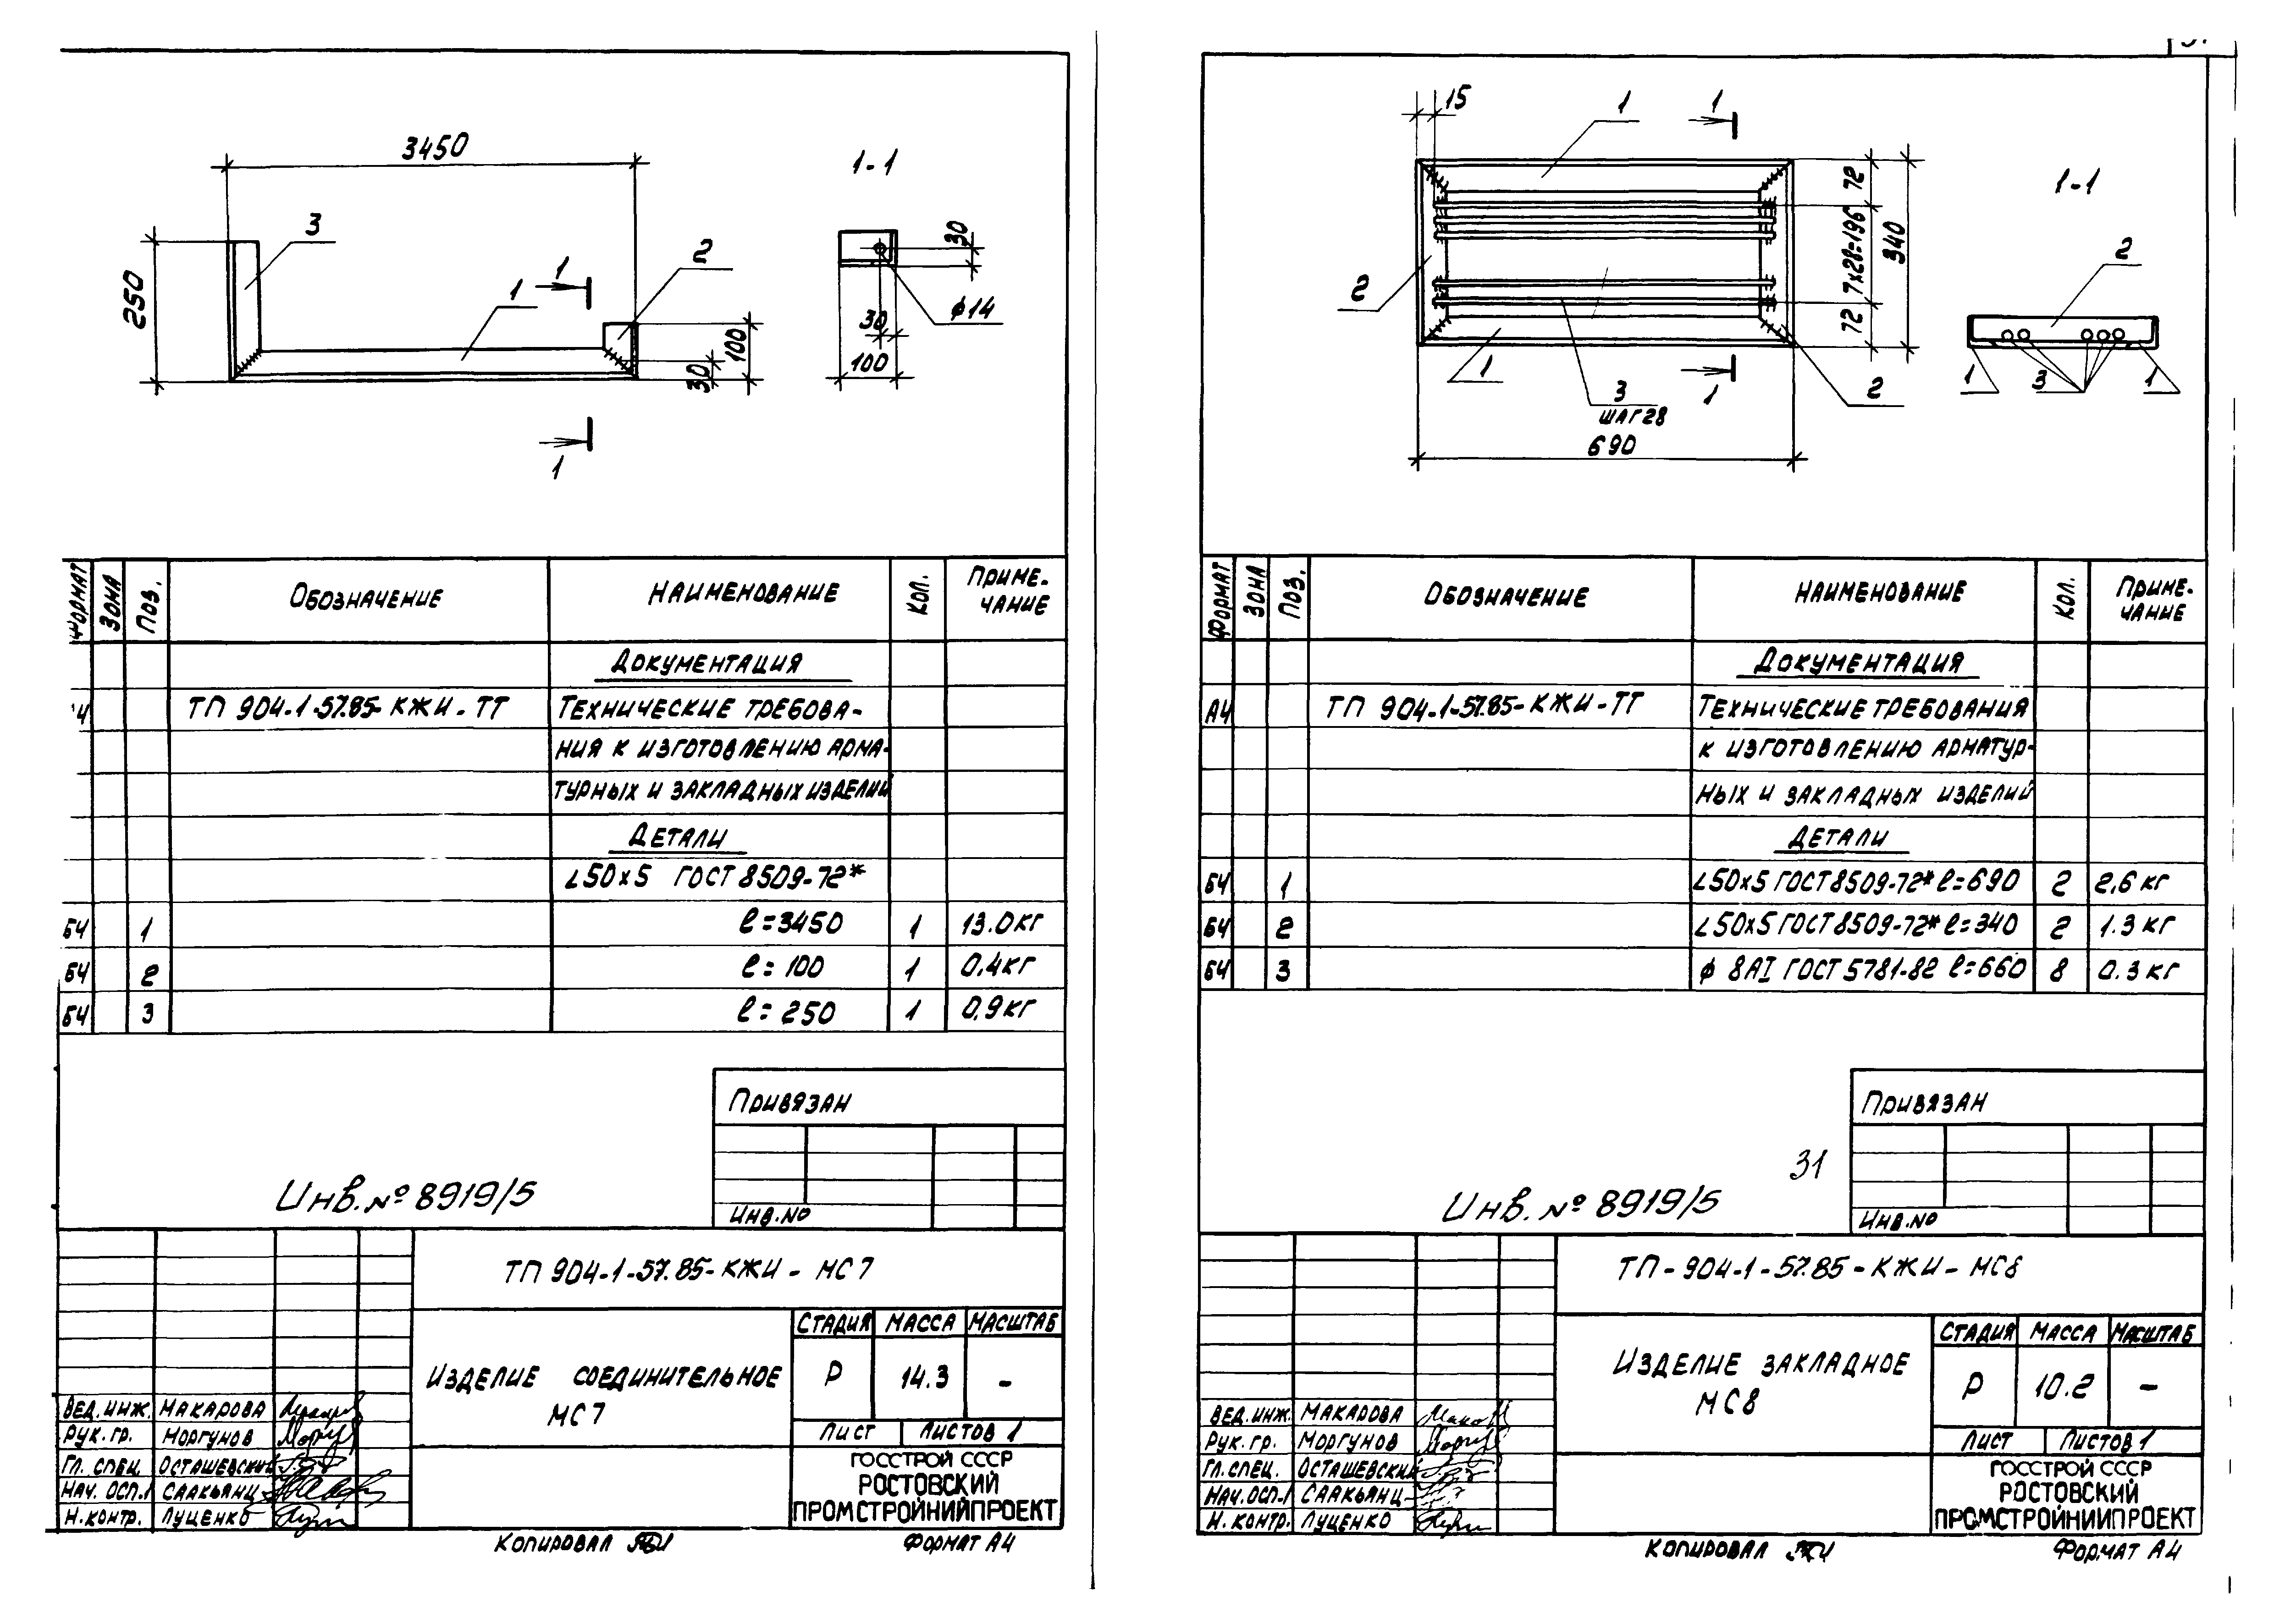 3450
1-1
3
2
1
1
250
100
30
30
ф14
30
100
1
ФОРМАТ
ЗОНА
ПОЗ.
ОБОЗНАЧЕНИЕ
НАИМЕНОВАНИЕ
КОЛ.
ПРИМЕ-
ЧАНИЕ
ДОКУМЕНТАЦИЯ
ТП 904-1-57.85-КЖИ-ТТ ТЕХНИЧЕСКИЕ ТРЕБОВА-
НИЯ К ИЗГОТОВЛЕНИЮ АРМА-
ТУРНЫХ И ЗАКЛАДНЫХ ИЗДЕЛИЙ
ДЕТАЛИ
L50х5 ГОСТ 8509-72*
БЧ 1 ℓ=3450 1 13.0кг
БЧ 2 ℓ=100 1 0.4кг
БЧ 3 ℓ=250 1 0.9кг
ПРИВЯЗАН
Инв.№ 8919/5
ИНВ.NО
ТП 904-1-57.85-КЖИ-МС7
СТАДИЯ МАССА МАСШТАБ
ИЗДЕЛИЕ СОЕДИНИТЕЛЬНОЕ
МС7
Р 14.3 -
ЛИСТ ЛИСТОВ 1
ВЕД.ИНЖ. МАКАРОВА
РУК.ГР. МОРГУНОВ
ГЛ.СПЕЦ. ОСТАШЕВСКИЙ
НАЧ.ОСП.1 СААКЬЯНЦ
Н.КОНТР. ЛУЦЕНКО
ГОССТРОЙ СССР
РОСТОВСКИЙ
ПРОМСТРОЙНИИПРОЕКТ
КОПИРОВАЛ
ФОРМАТ А4
15
1
1
1-1
72
7х28=196
340
72
2
2
1
3
ШАГ 28
1
2
1
3
1
690
ФОРМАТ
ЗОНА
ПОЗ.
ОБОЗНАЧЕНИЕ
НАИМЕНОВАНИЕ
КОЛ.
ПРИМЕ-
ЧАНИЕ
ДОКУМЕНТАЦИЯ
А4 ТП 904-1-57.85-КЖИ-ТТ ТЕХНИЧЕСКИЕ ТРЕБОВАНИЯ
К ИЗГОТОВЛЕНИЮ АРМАТУР-
НЫХ И ЗАКЛАДНЫХ ИЗДЕЛИЙ
ДЕТАЛИ
БЧ 1 L50х5 ГОСТ 8509-72* ℓ=690 2 2.6 кг
БЧ 2 L50х5 ГОСТ 8509-72* ℓ=340 2 1.3 кг
БЧ 3 ф 8АI ГОСТ 5781-82 ℓ=660 8 0.3 кг
ПРИВЯЗАН
31
Инв.№ 8919/5
ИНВ.NО
ТП-904-1-57.85-КЖИ-МС8
СТАДИЯ МАССА МАСШТАБ
ИЗДЕЛИЕ ЗАКЛАДНОЕ
МС8
Р 10.2 -
ЛИСТ ЛИСТОВ 1
ВЕД.ИНЖ. МАКАРОВА
РУК.ГР. МОРГУНОВ
ГЛ.СПЕЦ. ОСТАШЕВСКИЙ
НАЧ.ОСП.1 СААКЬЯНЦ
Н.КОНТР. ЛУЦЕНКО
ГОССТРОЙ СССР
РОСТОВСКИЙ
ПРОМСТРОЙНИИПРОЕКТ
КОПИРОВАЛ
ФОРМАТ А4